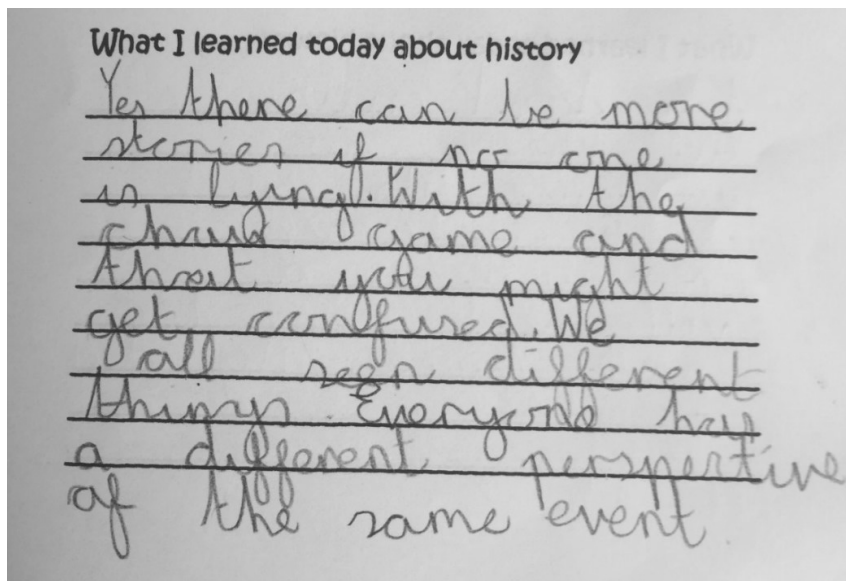 What I learned today about history
Yes there can be more
stories if no one
is lying. With the
game and
that you might
get confused. We
all seen different
things. Everyone has
a different perspective
of the same event